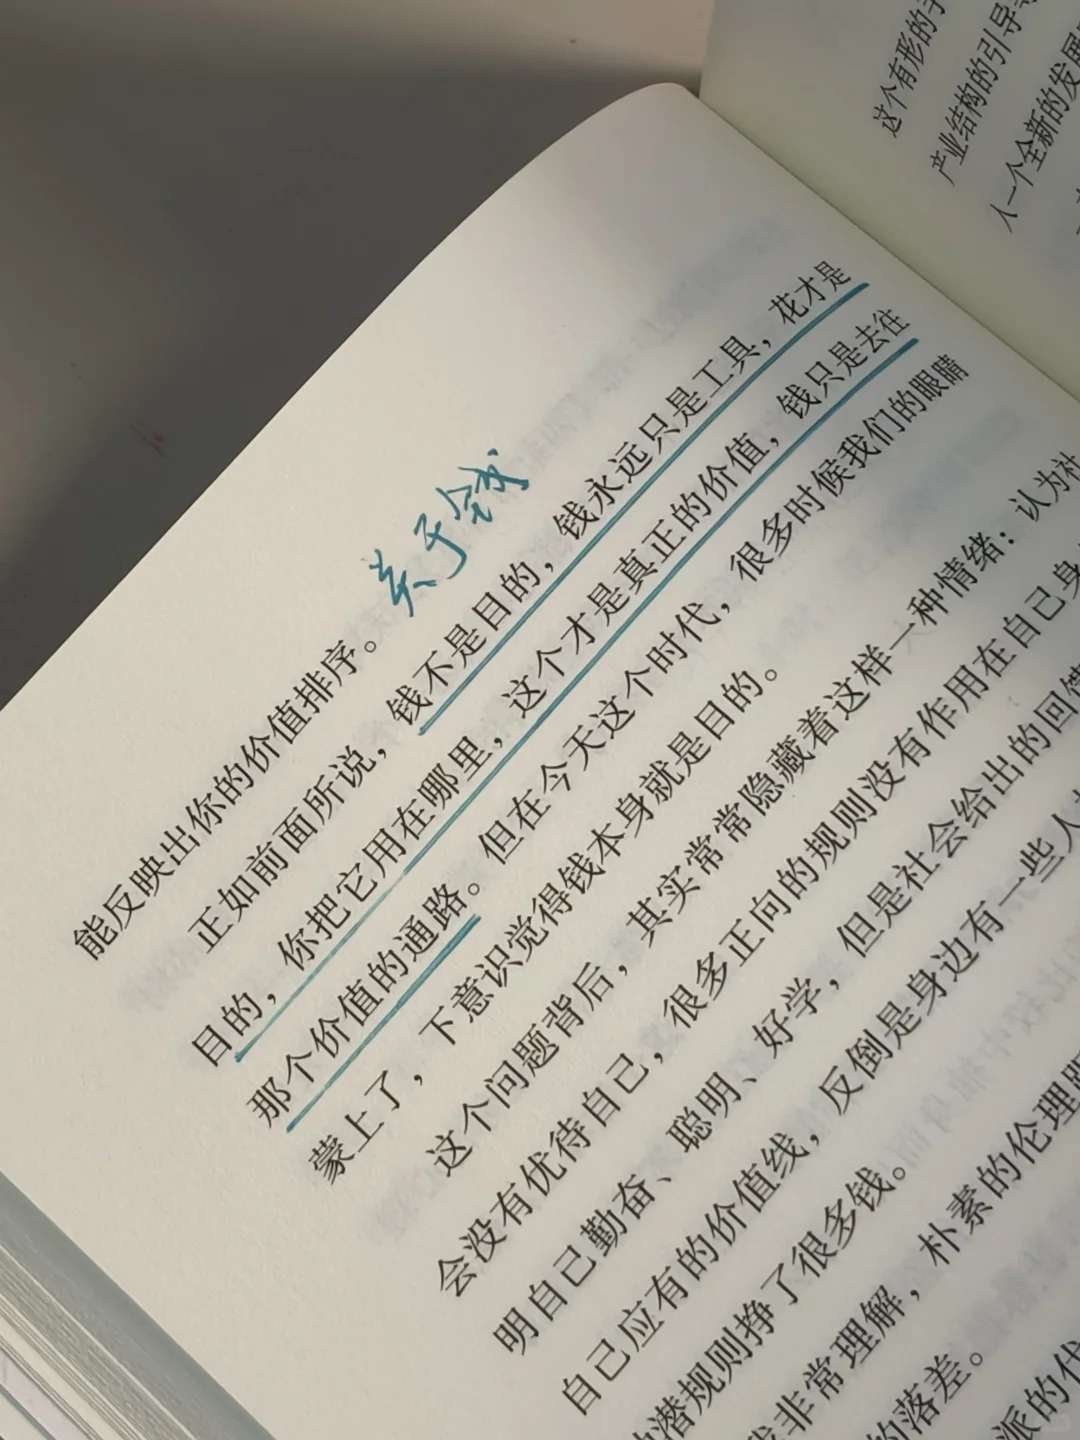 这个有形的手
产业结构的引导
人一个全新的发展
关于钱
能反映出你的价值排序。
正如前面所说，钱不是目的，钱永远只是工具，花才是
目的，你把它用在哪里，这个才是真正的价值，钱只是去往
那个价值的通路。但在今天这个时代，很多时候我们的眼睛
蒙上了，下意识觉得钱本身就是目的。
这个问题背后，其实常常隐藏着这样一种情绪：认为社
会没有优待自己，很多正向的规则没有作用在自己身
明自己勤奋、聪明、好学，但是社会给出的回馈
自己应有的价值线，反倒是身边有一些人
潜规则挣了很多钱。
非常理解，朴素的伦理
的落差。
派的代